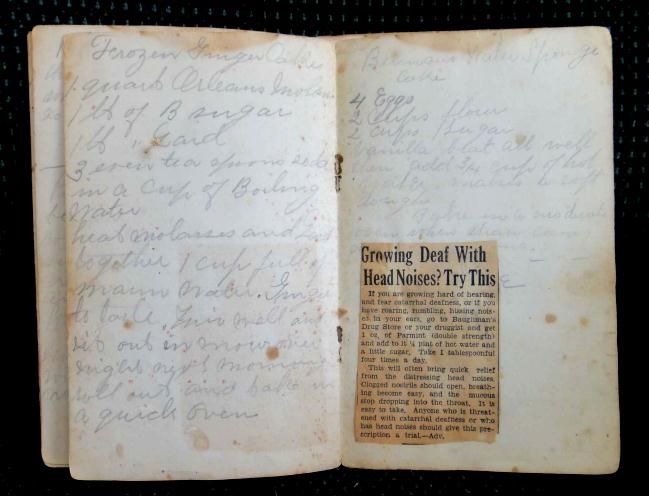 Frozen Ginger Cake
1 quart Orleans Molasses
1 lb of B sugar
1 lb " Lard
3 even tea spoons soda
in a cup of Boiling
Water
heat molasses and Lard
together 1 cup full of
warm water. Ginger
to taste. Mix well and
set out in snow over
night next morning
roll out and bake in
a quick oven
Water Sponge
Cake
4 Eggs
2 Cups flour
2 cups Sugar
Vanilla beat all well
then add 3/4 cup of hot
water makes a soft
dough
Bake in a moderate
oven
Growing Deaf With
Head Noises? Try This
If you are growing hard of hearing
and fear catarrhal deafness, or if you
have roaring, rumbling, hissing nois-
es in your ears, go to Baughman's
Drug Store or your druggist and get
1 oz. of Parmint (double strength)
and add to it ¼ pint of hot water and
a little sugar. Take 1 tablespoonful
four times a day.
This will often bring quick relief
from the distressing head noises.
Clogged nostrils should open, breath-
ing become easy, and the mucous
stop dropping into the throat. It is
easy to take. Anyone who is threat-
ened with catarrhal deafness or who
has head noises should give this pre-
scription a trial.—Adv.